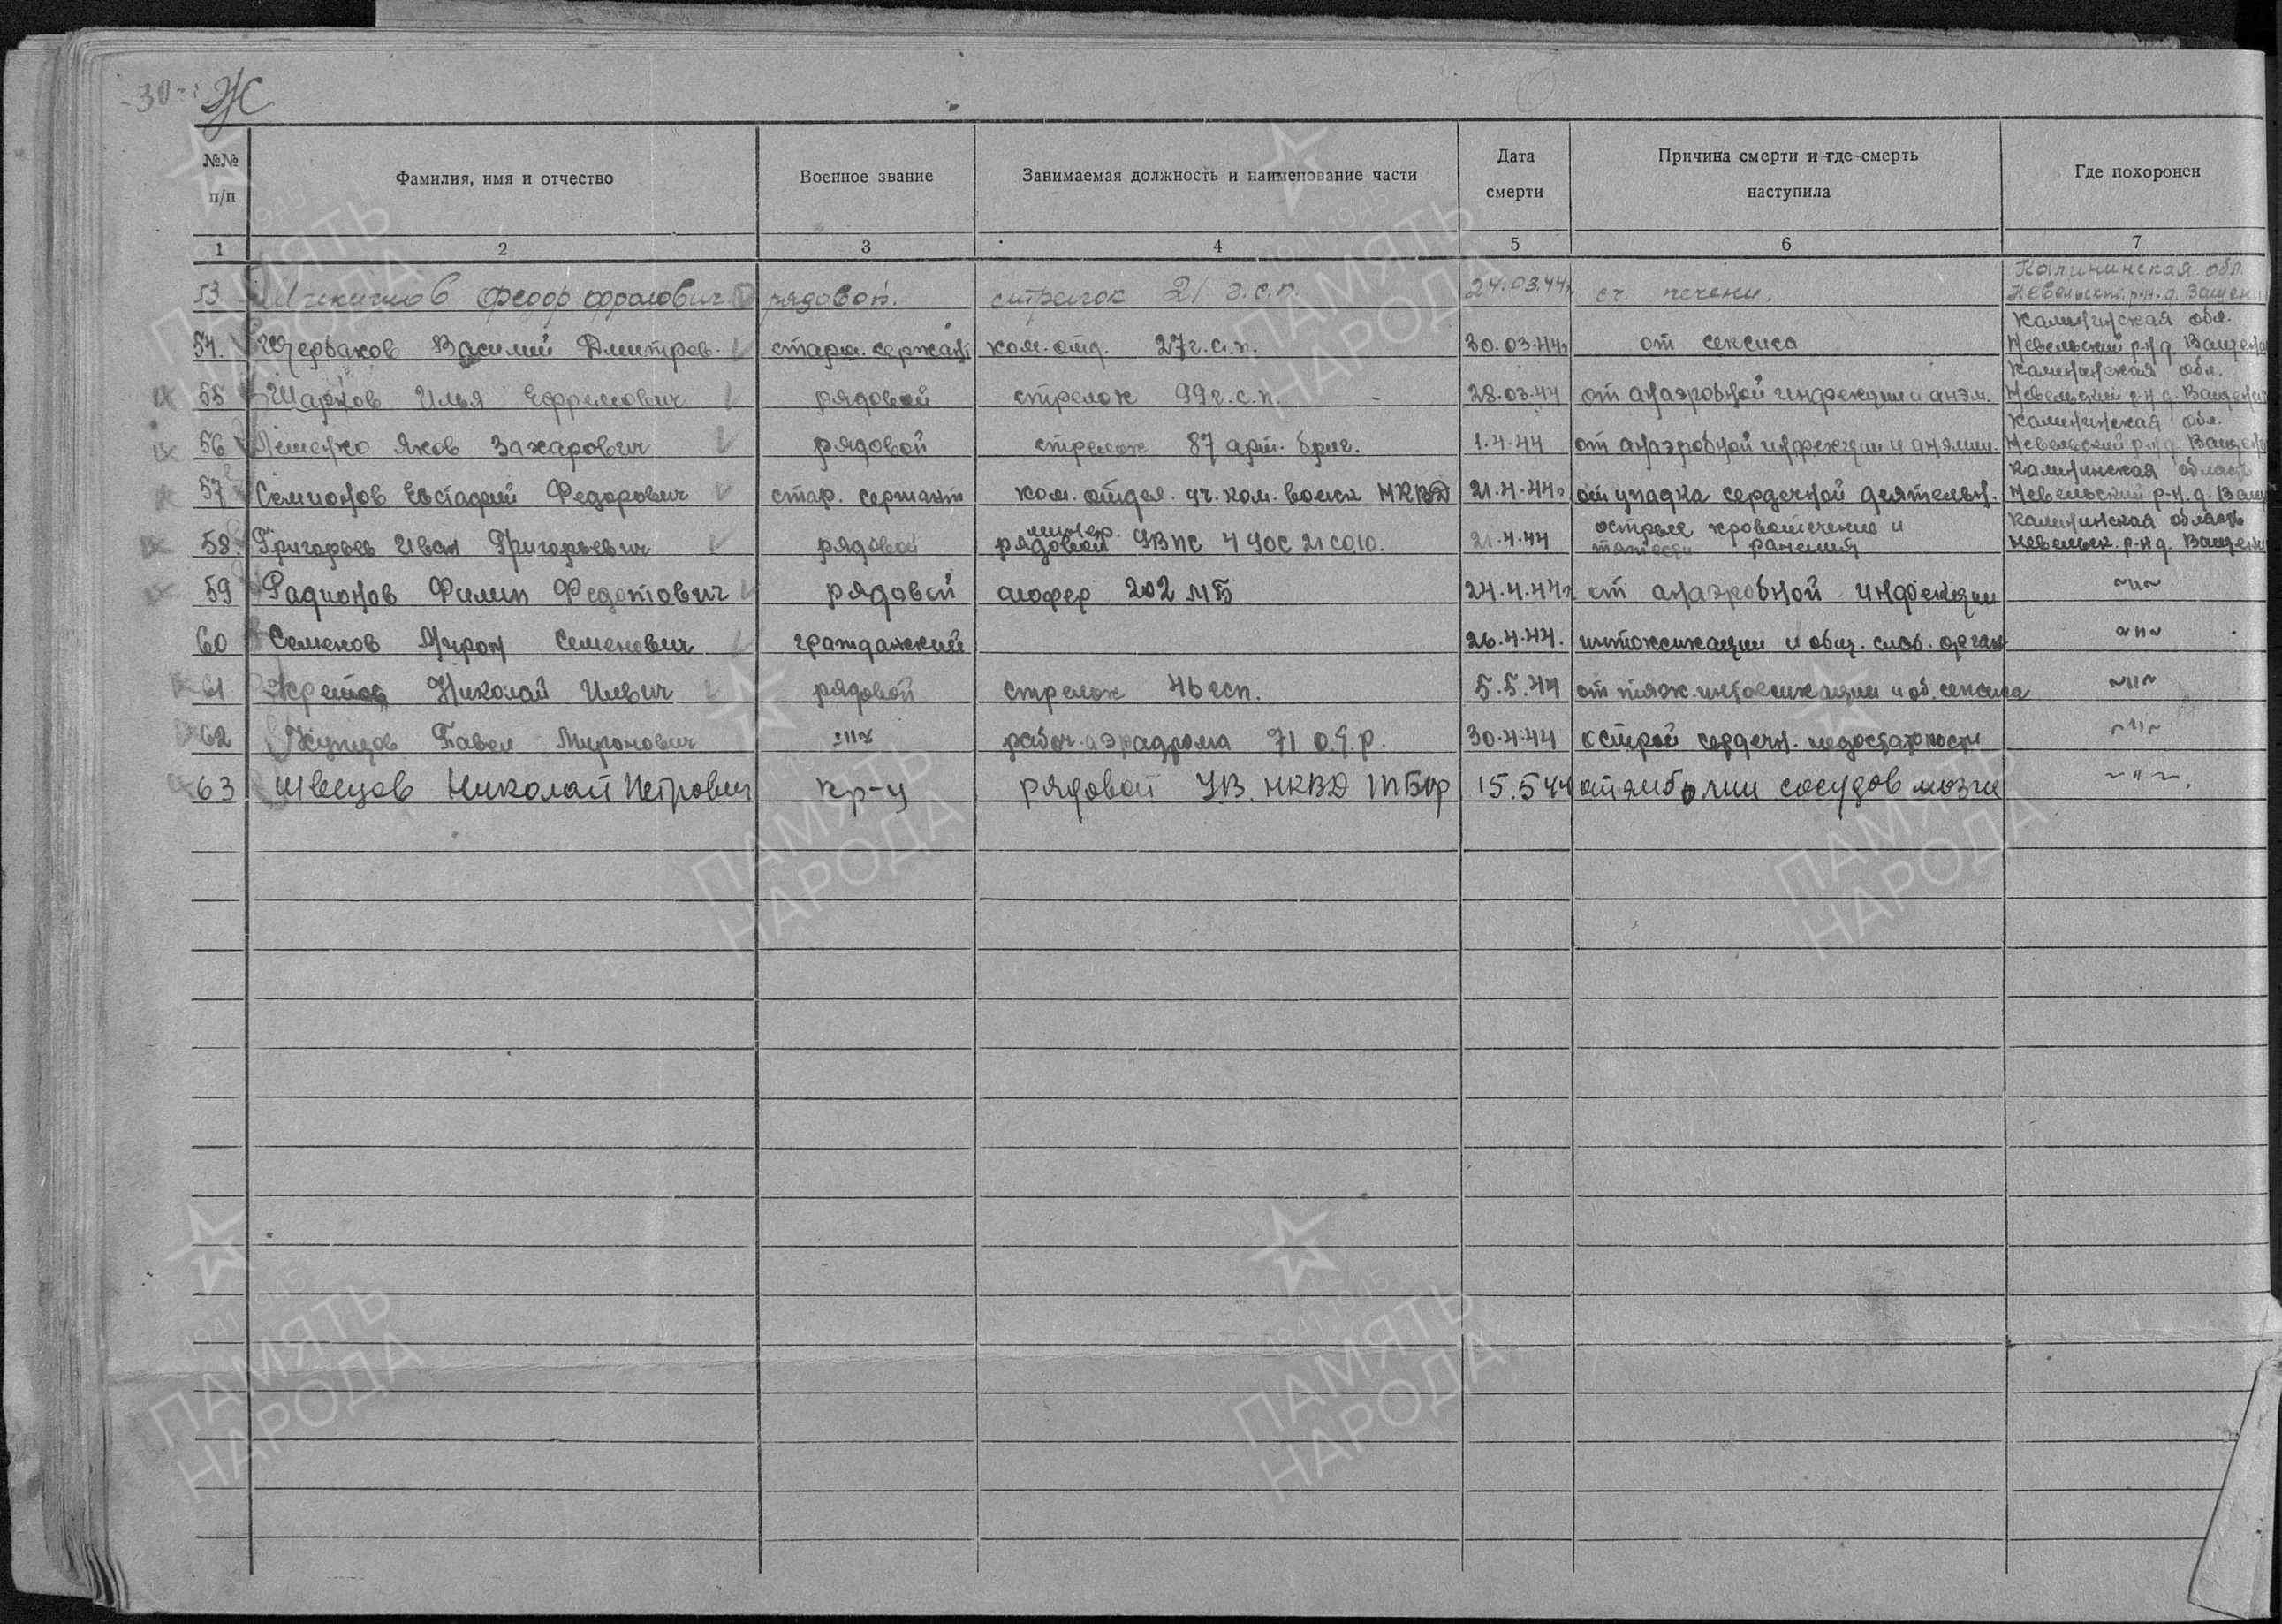 -30-
Ж
№№ п/п Фамилия, имя и отчество Военное звание Занимаемая должность и наименование части Дата смерти Причина смерти и где смерть наступила Где похоронен
1 2 3 4 5 6 7
53 Федор Фролович рядовой. стрелок 21 г.с.п. 24.03.44г. печени. Калининская обл. Невельск. р-н. д. Ващени
54. Щербаков Василий Дмитрев. старш. сержант ком. отд. 27 г.с.п. 30.03.44г от сепсиса Калининская обл. Невельский р-н д. Ващени
55 Шарков Илья Ефремович рядовой стрелок 99 г.с.п. - 28.03.44 от анаэробной инфекции и анэм. Калининская обл. Невельский р-н д. Ващени
56 Яков Захарович рядовой стрелок 87 арт. бриг. 1.4.44 от анаэробной инфекции и анэмии. Калининская обл. Невельский р-н д. Ващени
57 Семионов Евстафий Федорович стар. сержант ком. отдел. уч. ком. войск НКВД 21.4.44г от упадка сердечной деятельн. Калининская область Невельский р-н. д. Ващ
58 Григорьев Иван Григорьевич рядовой минер. рядовой УВПС 4 УОС 21 СОЮ. 21.4.44 острое кровотечение и тяжести ранения Калининская область Невельск. р-н д. Ващени
59 Радионов Филип Федотович рядовой шофер 202 МБ 24.4.44г от анаэробной инфекции ~"~
60 Семенов Мирон Семенович гражданский 26.4.44. интоксикации и общ. слаб. орган ~"~
61 Николай Ильич рядовой стрелок 46 гсп. 5.5.44 от тяж. интоксикации и об. сепсиса ~"~
62 Купцов Павел Миронович ~"~ рабоч. аэрадрома 71 о.я.р. 30.4.44 острой сердечн. недостаточности ~"~
63 Швецов Николай Петрович кр-ц рядовой УВ. НКВД 1ПБФр 15.5.44 от эмболии сосудов мозга ~"~.
ПАМЯТЬ НАРОДА
1941-1945
ПАМЯТЬ НАРОДА
1941-1945
ПАМЯТЬ НАРОДА
ПАМЯТЬ НАРОДА
1941-1945
ПАМЯТЬ НАРОДА
1941-1945
ПАМЯТЬ НАРОДА